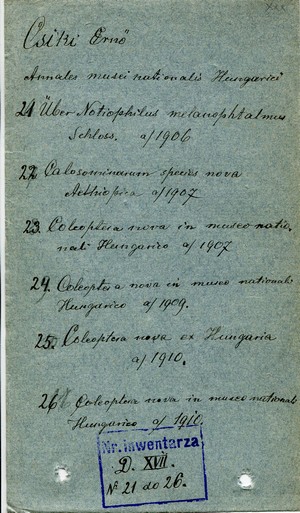 Csiki Ernő
Annales musei nationalis Hungarici
21 Über Notiophilus melanophtalmus
Schloss. a/1906.
22. Calosominarum species nova
Aethiopica a/1907.
23. Coleoptera nova in museo natio-
nali Hungarico a/1907
24. Coleoptera nova in museo nationali
Hungarico a/1909.
25. Coleoptera nova ex Hungaria
a/1910.
26. Coleoptera nova in museo nationali
Hungarico a/1910.
Nr. inwentarza
D. XVII.
№ 21 do 26.